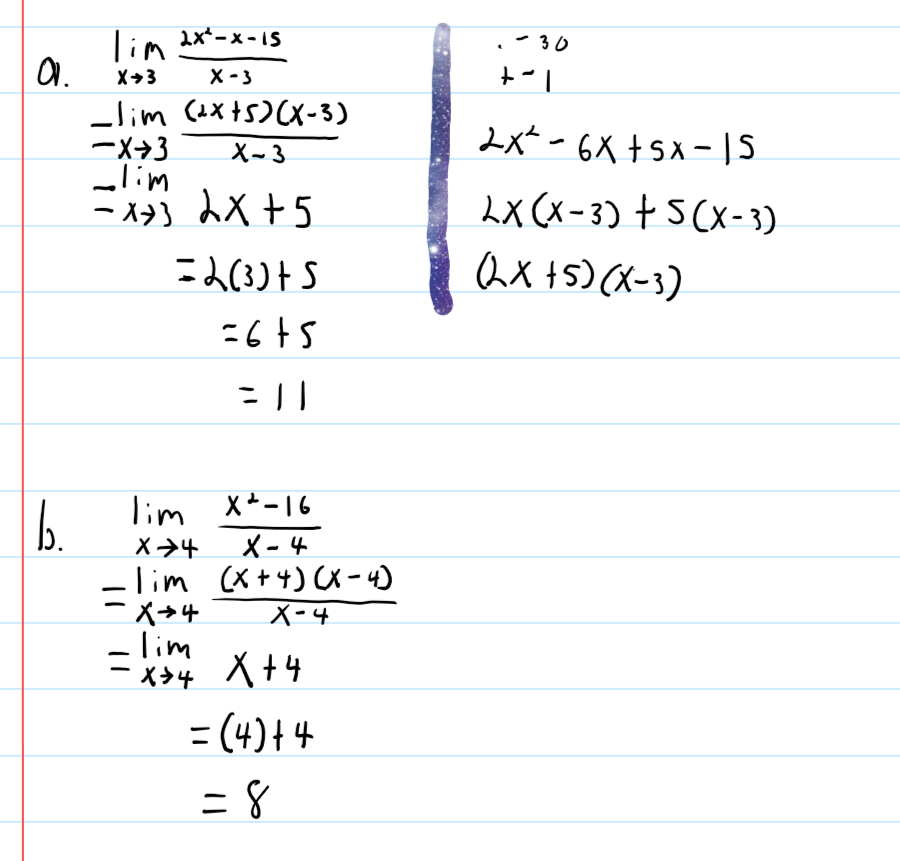 a. lim x→3 (2x²-x-15)/(x-3)
= lim x→3 ((2x+5)(x-3))/(x-3)
= lim x→3 2x+5
=2(3)+5
=6+5
=11
· -30
+ -1
2x²-6x+5x-15
2x(x-3)+5(x-3)
(2x+5)(x-3)
b. lim x→4 (x²-16)/(x-4)
= lim x→4 ((x+4)(x-4))/(x-4)
= lim x→4 x+4
=(4)+4
=8